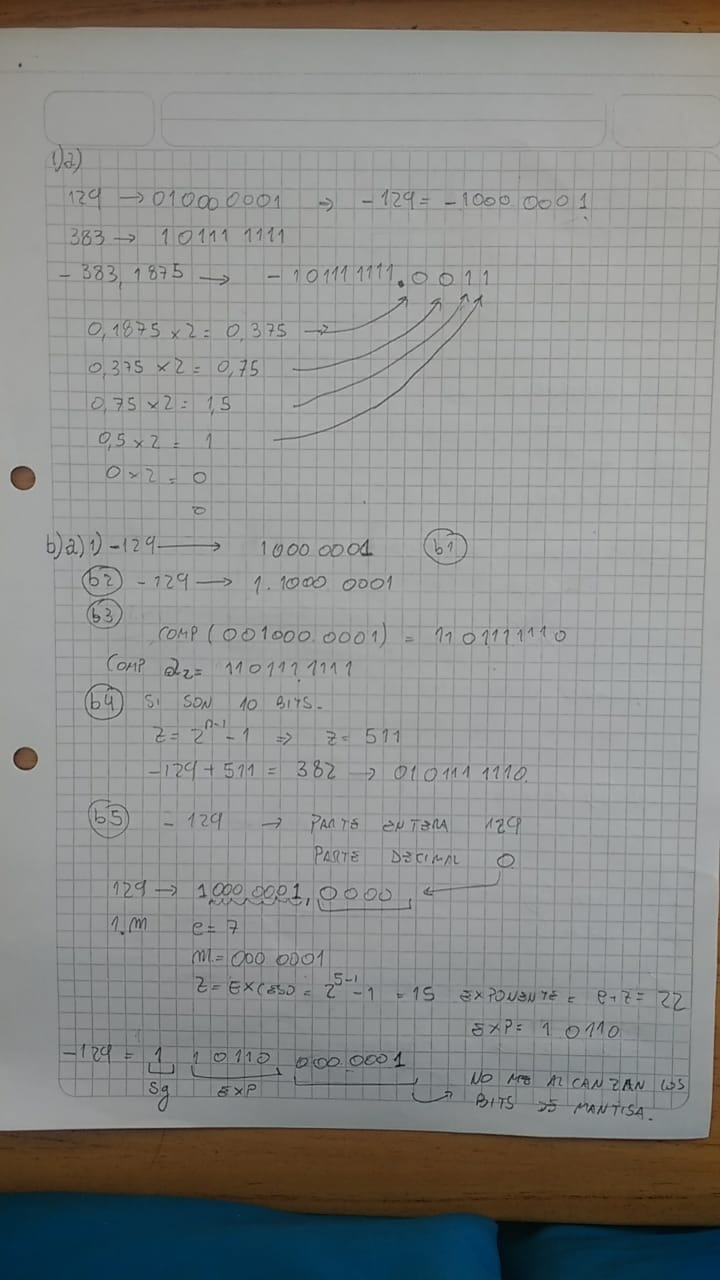 1)a)
129 → 010000001 ⇒ -129 = -10000001
383 → 101111111
- 383,1875 → - 101111111.0011
0,1875 x 2 = 0,375 →
0,375 x 2 = 0,75
0,75 x 2 = 1,5
0,5 x 2 = 1
0 x 2 = 0
0
b)a)1) -129 → 1000 0001 b1
b2 -129 → 1.1000 0001
b3
COMP (001000 0001) = 1101111110
COMP a2 = 1101111111
b4 SI SON 10 BITS.
Z = 2^n-1 - 1 ⇒ Z = 511
-129 + 511 = 382 → 0101111110
b5 - 129 → PARTE ENTERA 129
PARTE DECIMAL 0
129 → 1000 0001, 0000 ←
1.M e = 7
M = 000 0001
Z = EXCESO = 2^5-1 - 1 = 15 EXPONENTE = e + Z = 22
EXP = 10110
-129 = 1 10110 000.0001
Sg EXP NO ME ALCANZAN LOS
BITS DE MANTISA.